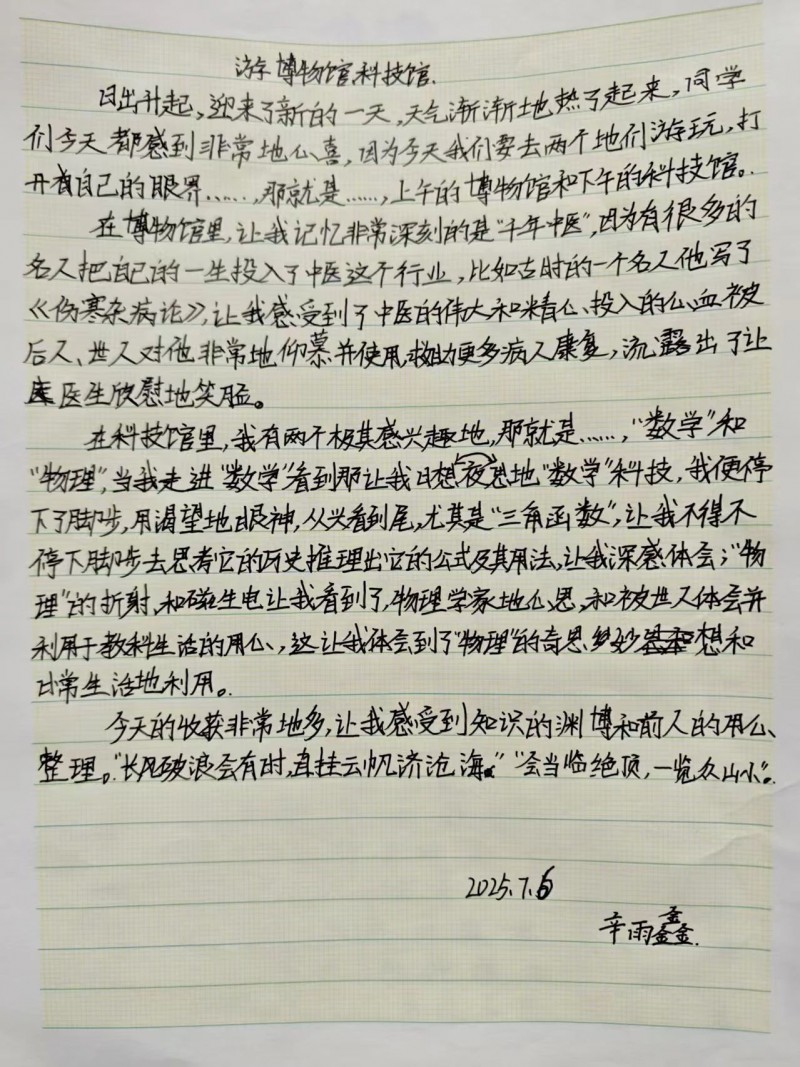 游博物馆科技馆.
日出升起，迎来了新的一天，天气渐渐地热了起来，同学
们今天都感到非常地心喜，因为今天我们要去两个地们游玩，打
开着自己的眼界……，那就是……，上午的博物馆和下午的科技馆。
在博物馆里，让我记忆非常深刻的是"千年中医"，因为有很多的
名人把自己的一生投入了中医这个行业，比如古时的一个名人他写了
《伤寒杂病论》，让我感受到了中医的伟大和精心、投入的心血被
后人、世人对他非常地仰慕并使用，救助更多病人康复，流露出了让
医生欣慰地笑脸。
在科技馆里，我有两个极其感兴趣地，那就是……，"数学"和
"物理"，当我走进"数学"看到那让我日想夜思地"数学"科技，我便停
下了脚步，用渴望地眼神，从头看到尾，尤其是"三角函数"，让我不得不
停下脚步去思考它的历史推理出它的公式及其用法，让我深感体会；"物
理"的折射、和磁生电让我看到了，物理学家地心思，和被世人体会并
利用于教科生活的用心、，这让我体会到了"物理"的奇思妙想和
日常生活地利用。
今天的收获非常地多，让我感受到知识的渊博和前人的用心、
整理。"长风破浪会有时，直挂云帆济沧海。" "会当临绝顶，一览众山小"。
2025.7.6
辛雨鑫.